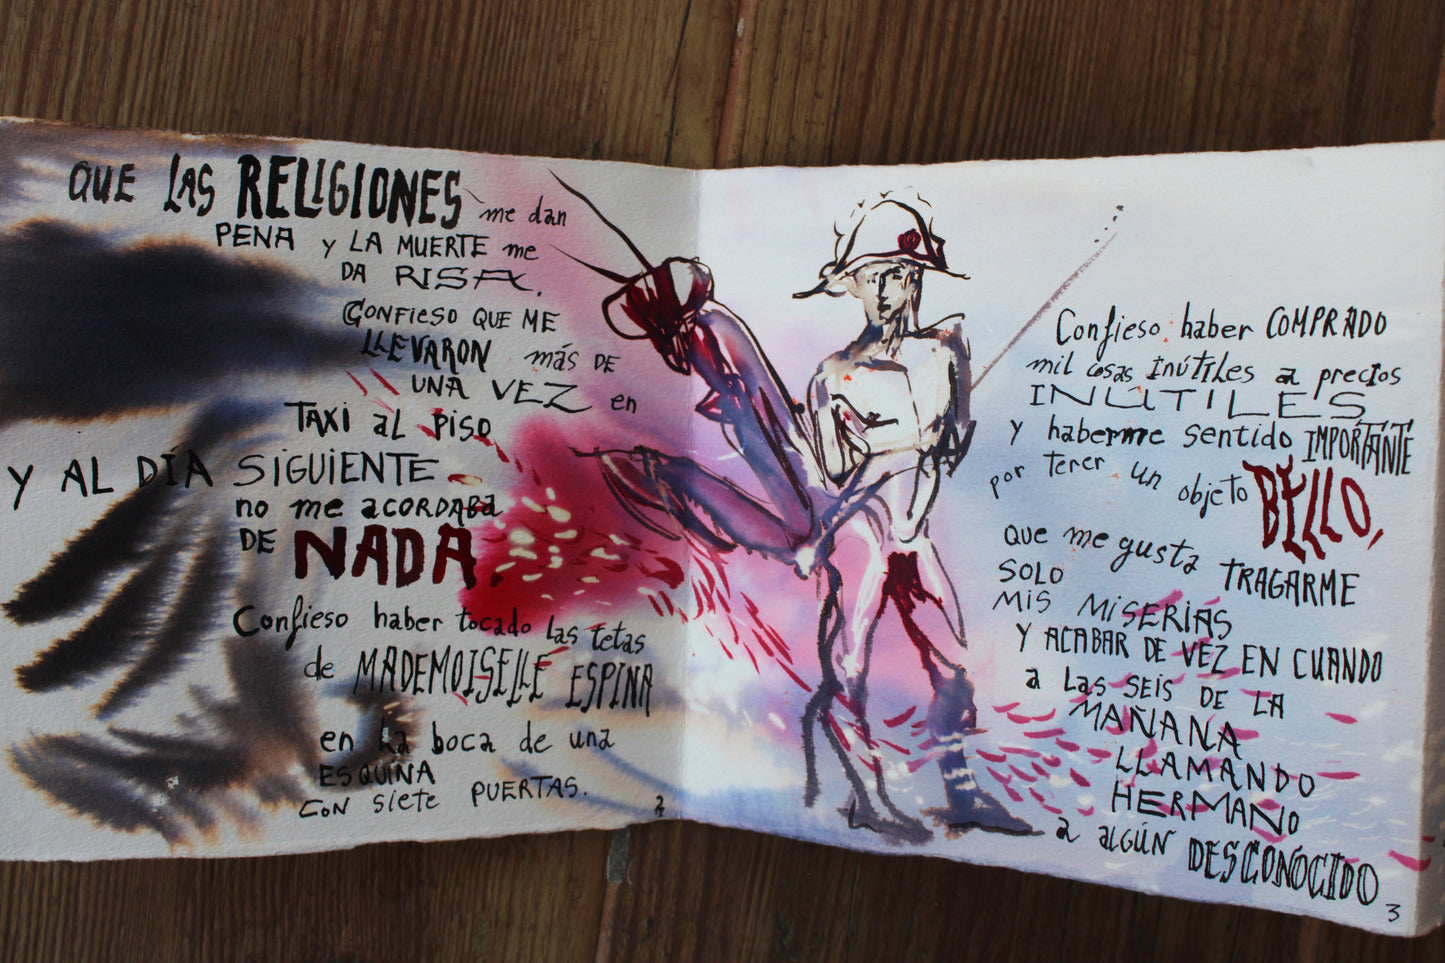 QUE LAS RELIGIONES me dan
PENA y LA MUERTE me
DA RISA.
CONFIESO QUE ME
LLEVARON más DE
UNA VEZ en
TAXI AL PISO
Y AL DÍA SIGUIENTE
no me ACORDABA
DE NADA.
Confieso haber tocado las tetas
de MADEMOISELLE ESPINA
en la boca de una
ESQUINA
CON SIETE PUERTAS.
2
Confieso haber COMPRADO
mil cosas INÚTILES a precios
INÚTILES
y haberme sentido IMPORTANTE
por tener un objeto BELLO,
Que me gusta TRAGARME
SOLO
MIS MISERIAS
Y ACABAR DE VEZ EN CUANDO
a LAS SEIS DE LA
MAÑANA
LLAMANDO
HERMANO
a ALGÚN DESCONOCIDO
3